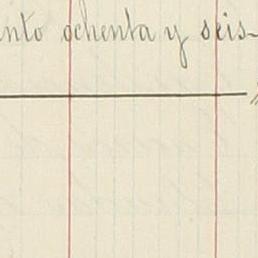 ento ochenta y seis-